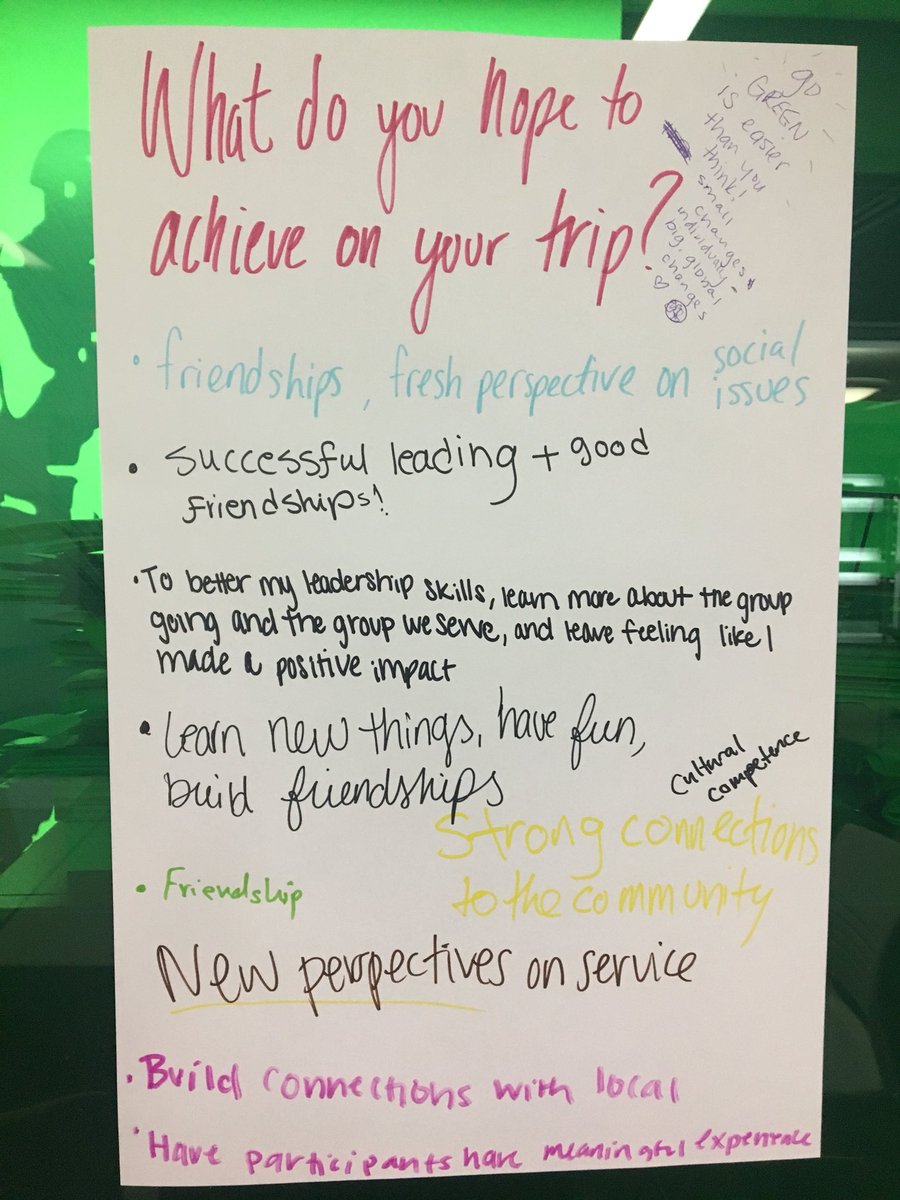 What do you hope to
achieve on your trip?
go
GREEN
is easier
than you
think!
small
changes
individually -
big, global
changes
• friendships, fresh perspective on social
issues
• successful leading + good
friendships!
• To better my leadership skills, learn more about the group
going and the group we serve, and leave feeling like I
made a positive impact
• Learn new things, have fun,
build friendships
cultural
competence
Strong connections
to the community
• Friendship
New perspectives on service
• Build connections with local
• Have participants have meaningful